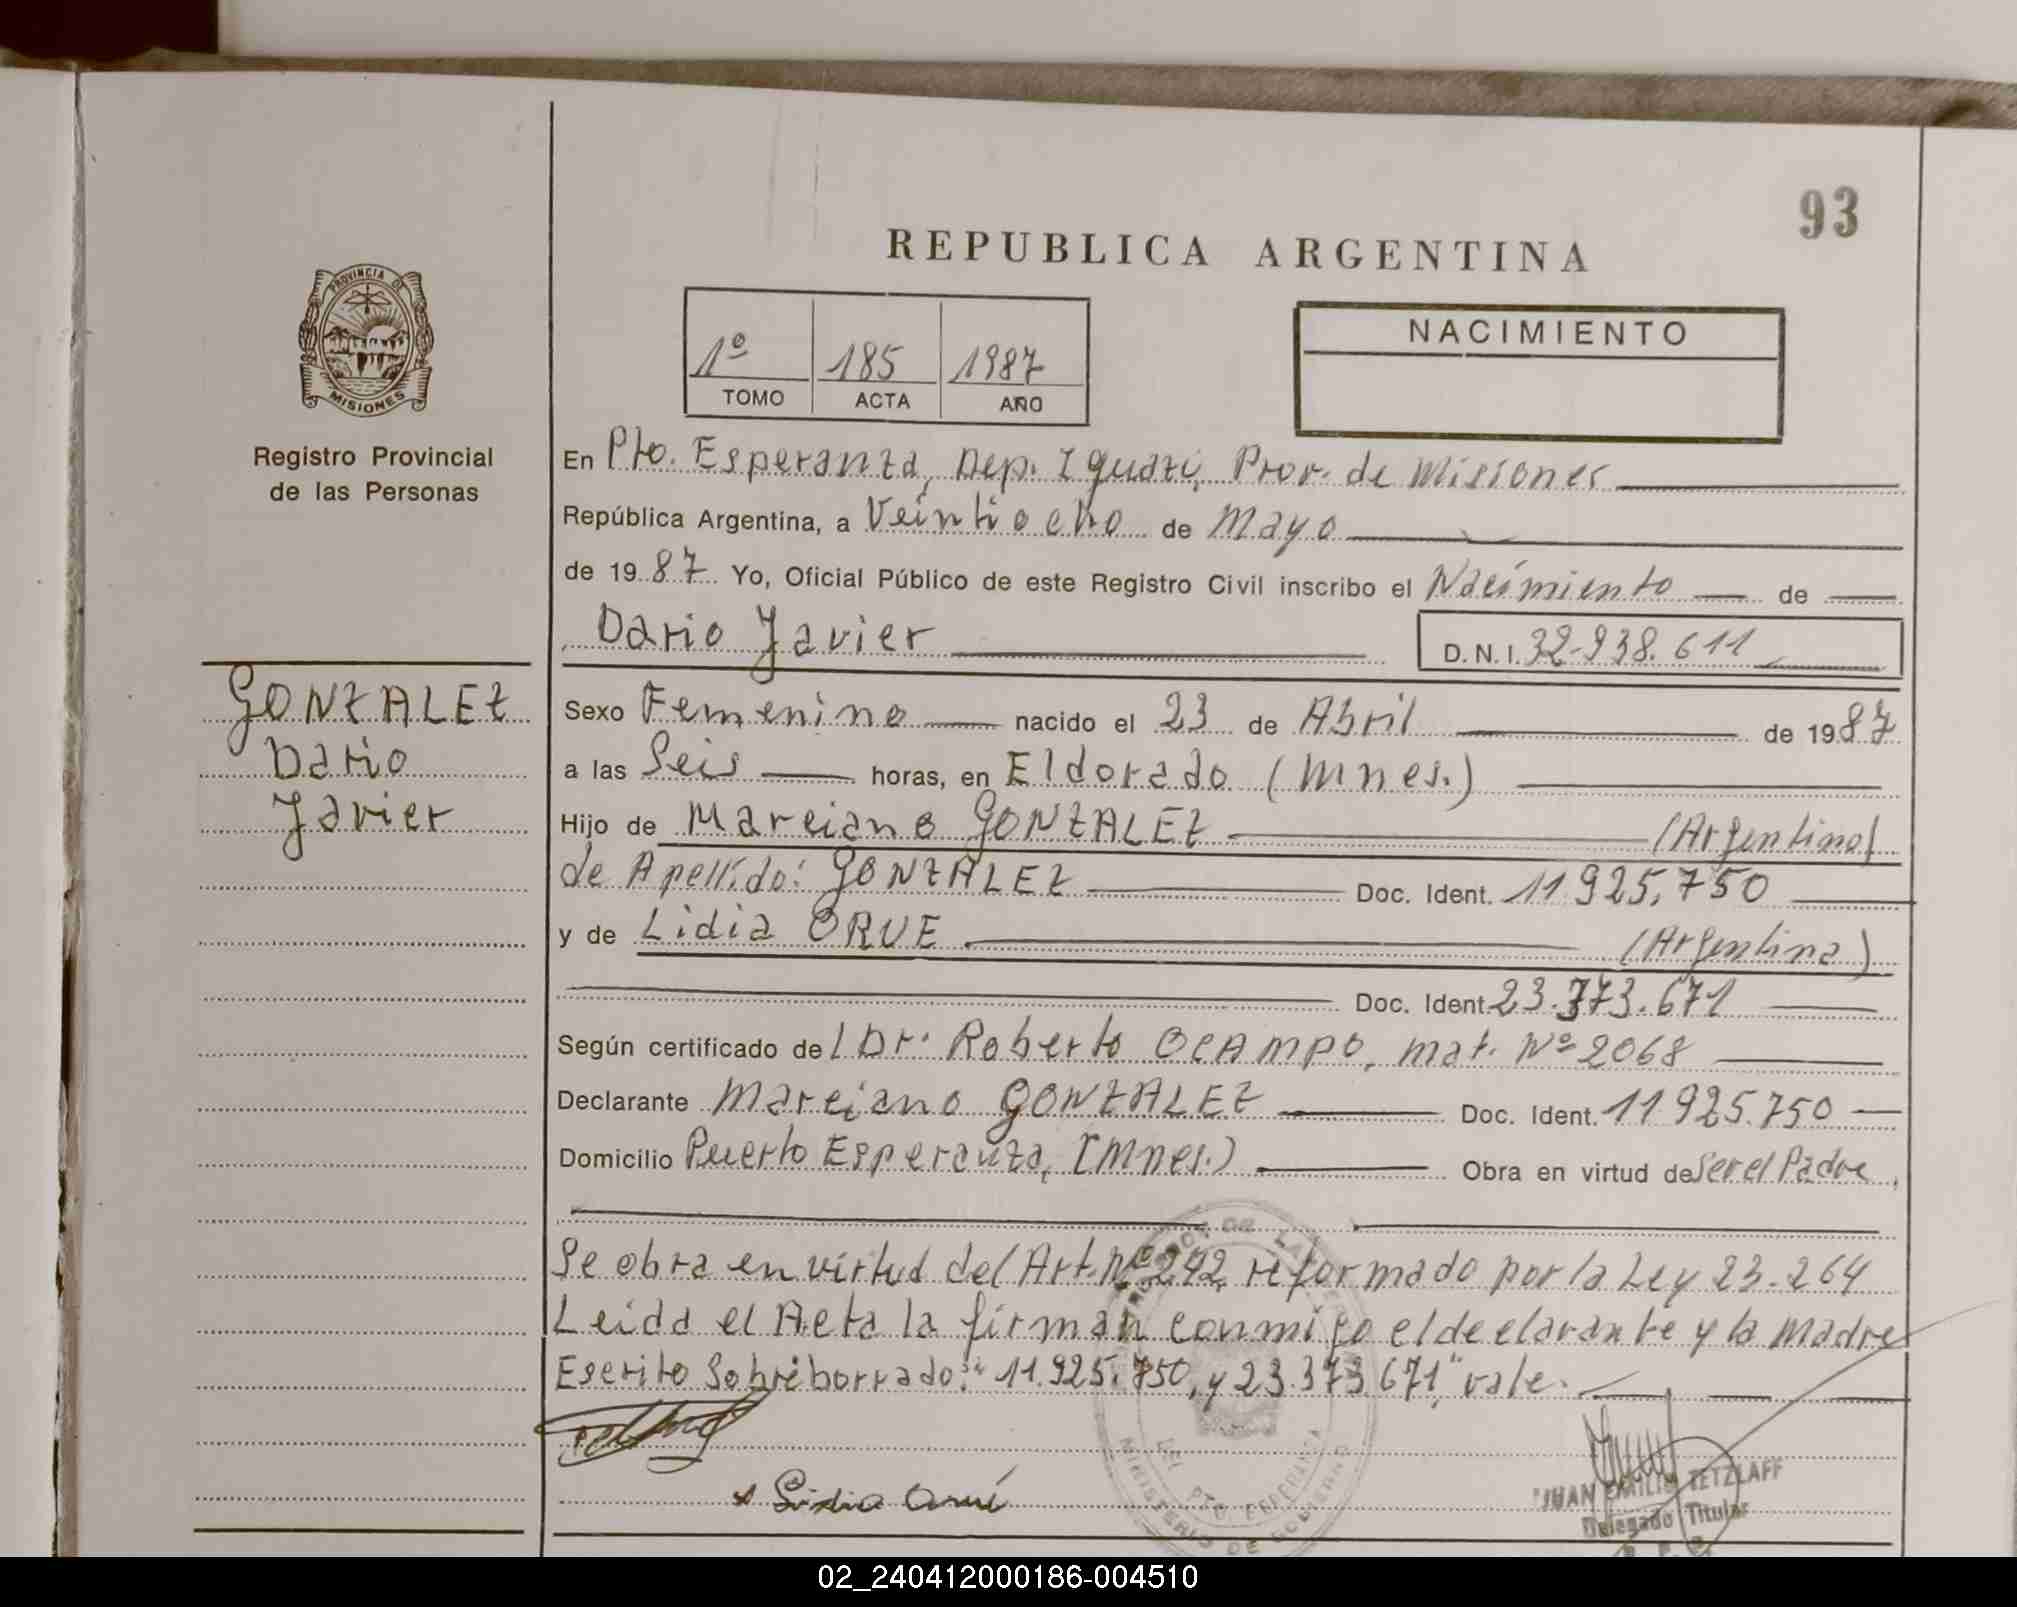 93
REPUBLICA ARGENTINA
PROVINCIA DE
MISIONES
Registro Provincial
de las Personas
1º 185 1987
TOMO ACTA AÑO
NACIMIENTO
En Pto. Esperanza, Dep. Iguazú, Prov. de Misiones
República Argentina, a Veintiocho de Mayo
de 1987 Yo, Oficial Público de este Registro Civil inscribo el Nacimiento de
Dario Javier D.N.I. 32.938.611
GONZALEZ
Dario
Javier
Sexo Femenino nacido el 23 de Abril de 1987
a las Seis horas, en Eldorado (Mnes.)
Hijo de Marciano GONZALEZ (Argentino)
de Apellido: GONZALEZ Doc. Ident. 11.925.750
y de Lidia ORUE (Argentina)
Doc. Ident. 23.373.671
Según certificado del Dr. Roberto OCAMPO, mat. Nº 2068
Declarante Marciano GONZALEZ Doc. Ident. 11.925.750
Domicilio Puerto Esperanza, (Mnes.) Obra en virtud de Ser el Padre
Se obra en virtud del Art. Nº 242 reformado por la Ley 23.264
Leida el Acta la firman conmigo el declarante y la Madre
Escrito Sobreborrado: "11.925.750, y 23.373.671" vale.
Lidia
JUAN EMILIO TETZLAFF
Delegado Titular
MINISTERIO DE GOBIERNO
02_240412000186-004510